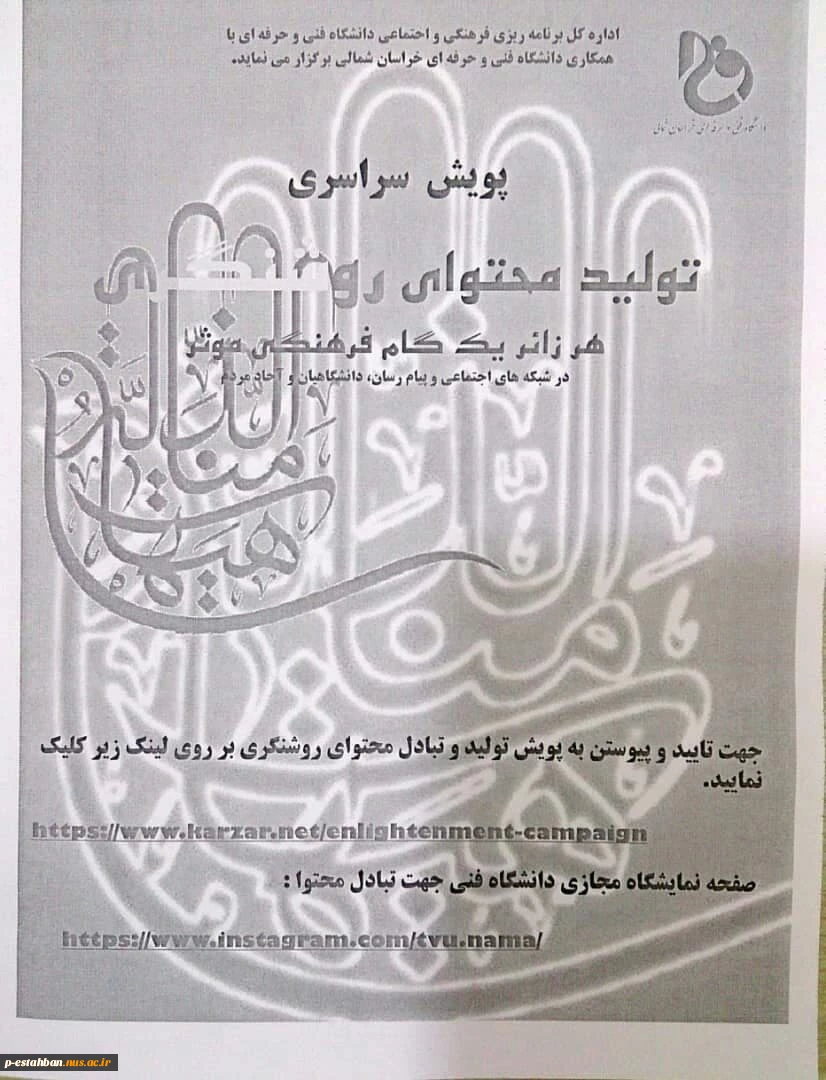 اداره کل برنامه ریزی فرهنگی و اجتماعی دانشگاه فنی و حرفه ای با
همکاری دانشگاه فنی و حرفه ای خراسان شمالی برگزار می نماید.
دانشگاه فنی و حرفه ای خراسان شمالی
پویش سراسری
تولید محتوای روشنگری
هر زائر یک گام فرهنگی موثر
در شبکه های اجتماعی و پیام رسان، دانشگاهیان و آحاد مردم
هیهات
منا
الذلة
جهت تایید و پیوستن به پویش تولید و تبادل محتوای روشنگری بر روی لینک زیر کلیک
نمایید.
https://www.karzar.net/enlightenment-campaign
صفحه نمایشگاه مجازی دانشگاه فنی جهت تبادل محتوا :
https://www.instagram.com/tvu.nama/
p-estahban.nus.ac.ir